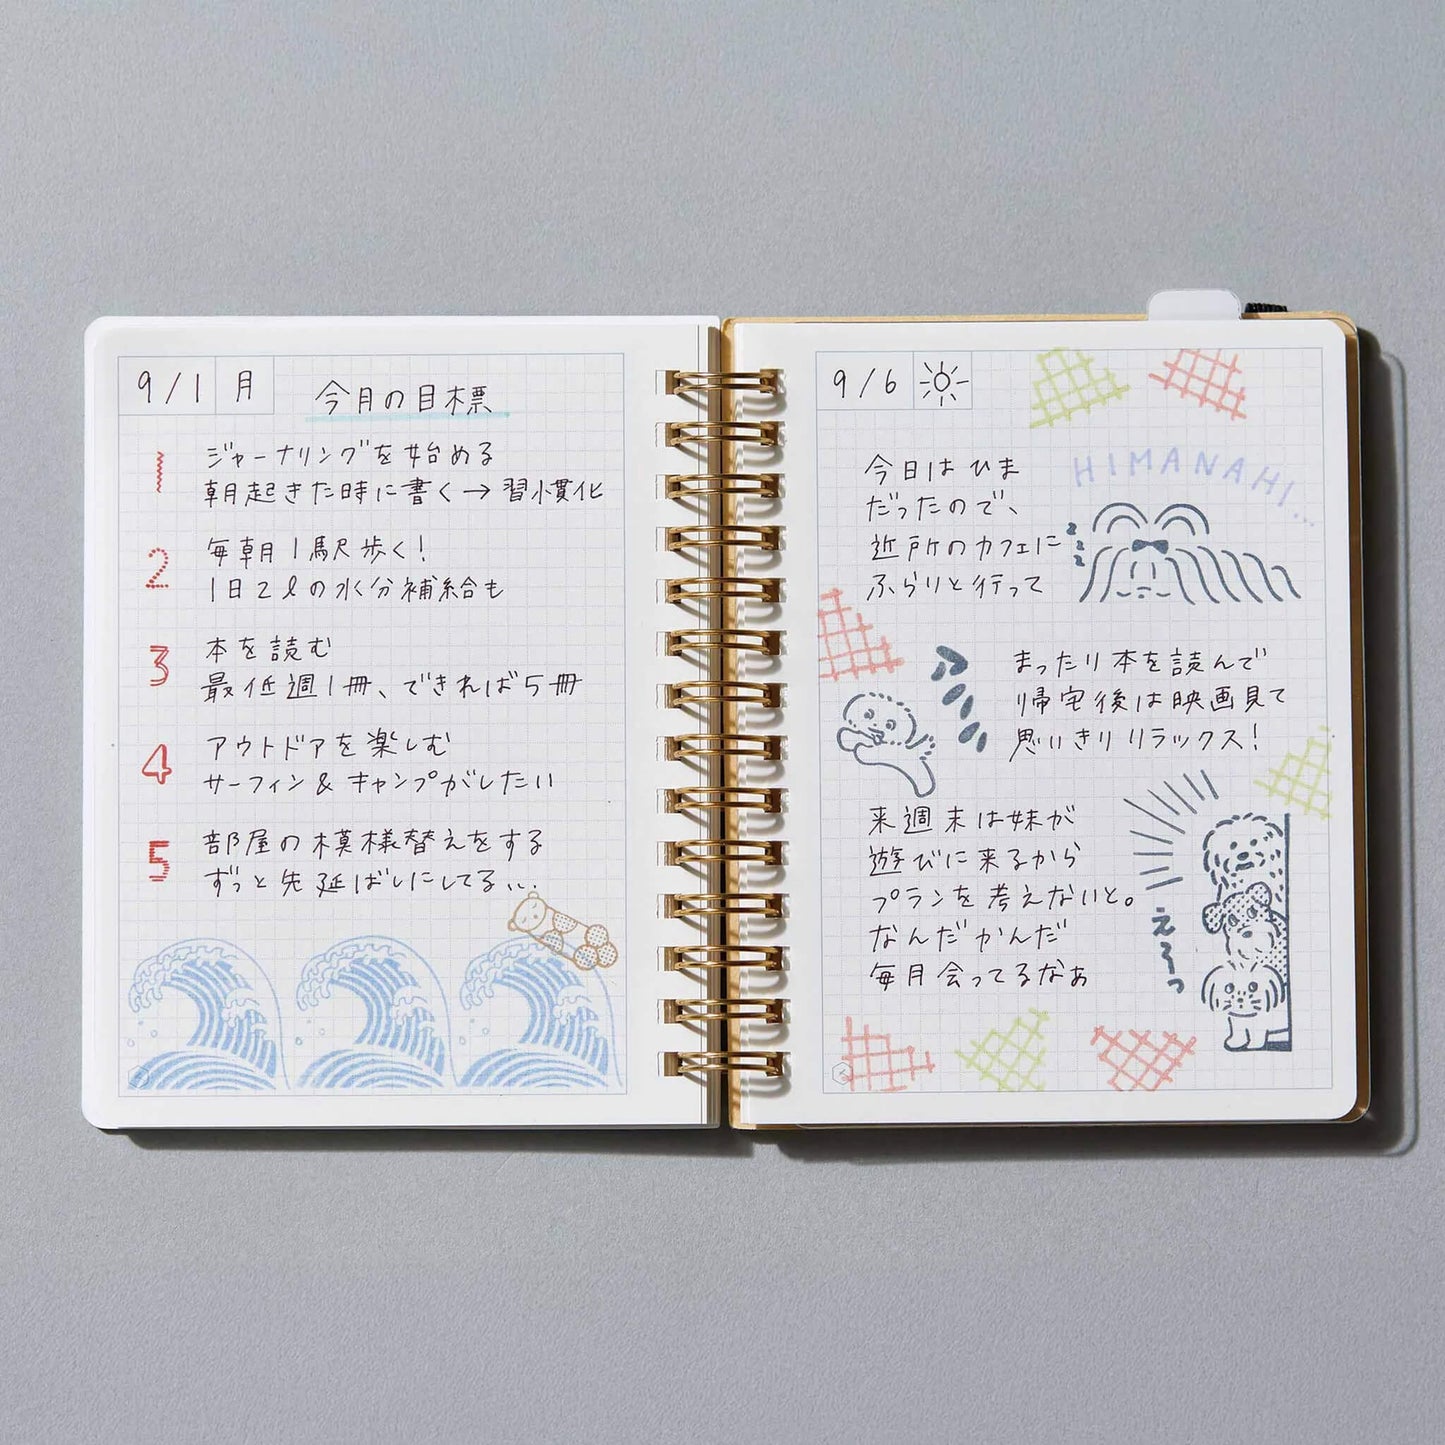 9/1 月
今月の目標
1 ジャーナリングを始める
朝起きた時に書く→習慣化
2 毎朝1駅歩く!
1日2ℓの水分補給も
3 本を読む
最低週1冊、できれば5冊
4 アウトドアを楽しむ
サーフィン&キャンプがしたい
5 部屋の模様替えをする
ずっと先延ばしにしてる...
9/6
HIMANAHI...
今日はひま
だったので、
近所のカフェに
ふらりと行って
zzz
まったり本を読んで
帰宅後は映画見て
思いきりリラックス!
来週末は妹が
遊びに来るから
プランを考えないと。
なんだかんだ
毎月会ってるなぁ
えーっ